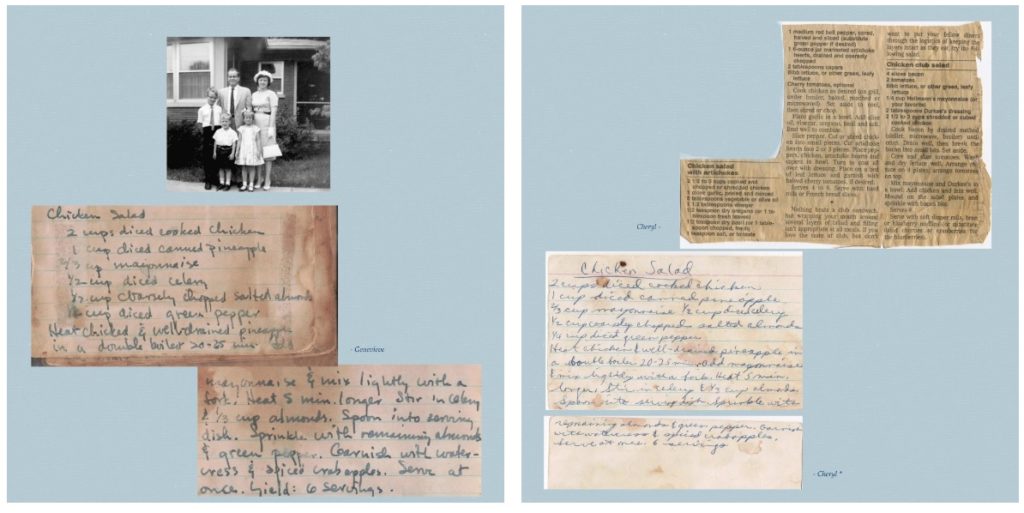 Chicken Salad
2 cups diced cooked chicken
1 cup diced canned pineapple
2/3 cup mayonnaise
1/2 cup diced celery
1/2 cup coarsely chopped salted almonds
cup diced green pepper
Heat Chicked & well drained pineapple
in a double boiler 20-25 min. Add
- Genevieve
mayonnaise & mix lightly with a
fork. Heat 5 min. longer Stir in celery
& 1/3 cup almonds. Spoon into serving
dish. Sprinkle with remaining almonds
& green pepper. Garnish with water-
cress & spiced crabapples. Serve at
once. Yield: 6 servings.
1 medium red bell pepper, cored,
halved and sliced (substitute
green pepper if desired)
1 6-ounce jar marinated artichoke
hearts, drained and coarsely
chopped
2 tablespoons capers
Bibb lettuce, or other green, leafy
lettuce
Cherry tomatoes, optional
Cook chicken as desired (on grill,
under broiler, baked, poached or
microwaved). Set aside to cool,
then shred or chop.
Place garlic in a bowl. Add olive
oil, vinegar, oregano, basil and salt.
Beat well to combine.
Slice pepper. Cut or sliced chick-
en into small pieces. Cut artichoke
hearts into 2 or 3 pieces. Place pep-
pers, chicken, artichoke hearts and
capers in bowl. Turn to coat all
over with dressing. Place on a bed
of leaf lettuce and garnish with
halved cherry tomatoes, if desired.
Serves 4 to 6. Serve with hard
rolls or French bread slices.
Nothing beats a club sandwich,
but wrapping your mouth around
several layers of bread and filling
isn't appropriate at all meals. If you
love the taste of club, but don't
want to put your fellow diners
through the logistics of keeping the
layers intact as they eat, try the fol-
lowing salad.
Chicken club salad
4 slices bacon
2 tomatoes
Bibb lettuce, or other green, leafy
lettuce
1/4 cup Hellmann's mayonnaise (or
your favorite)
2 tablespoons Durkee's dressing
2 1/2 to 3 cups shredded or cubed
cooked chicken
Cook bacon by desired method
(skillet, microwave, broiler) until
crisp. Drain well, then break the
bacon into small bits. Set aside.
Core and slice tomatoes. Wash
and dry lettuce well. Arrange let-
tuce on 4 plates; arrange tomatoes
on top.
Mix mayonnaise and Durkee's in
a bowl. Add chicken and mix well.
Mound on the salad plates and
sprinkle with bacon bits.
Serves 4.
Serve with soft dinner rolls, bran
or blueberry muffins
Chicken salad
with artichokes
2 1/2 to 3 cups cooked and
chopped or shredded chicken
1 clove garlic, peeled and minced
6 tablespoons vegetable or olive oil
1 1/2 tablespoons vinegar
1/2 teaspoon dry oregano (or 1 ta-
blespoon fresh leaves)
1/2 teaspoon dry basil (or 1 table-
spoon chopped, fresh)
1 teaspoon salt, or to taste
Cheryl -
Chicken Salad
2 cups diced cooked chicken
1 cup diced canned pineapple
2/3 cup mayonnaise 1/2 cup diced celery
1/2 cup coarsely chopped salted almonds
1/4 cup diced green pepper
Heat chicken & well-drained pineapple in
a double boiler 20-25 min. Add mayonnaise
& mix lightly with a fork. Heat 5 min.
longer. Stir in celery & 1/3 cup almonds.
Spoon into serving dish. Sprinkle with
remaining almonds & green pepper. Garnish
with watercress & spiced crabapples.
Serve at once. 6 servings
- Cheryl *